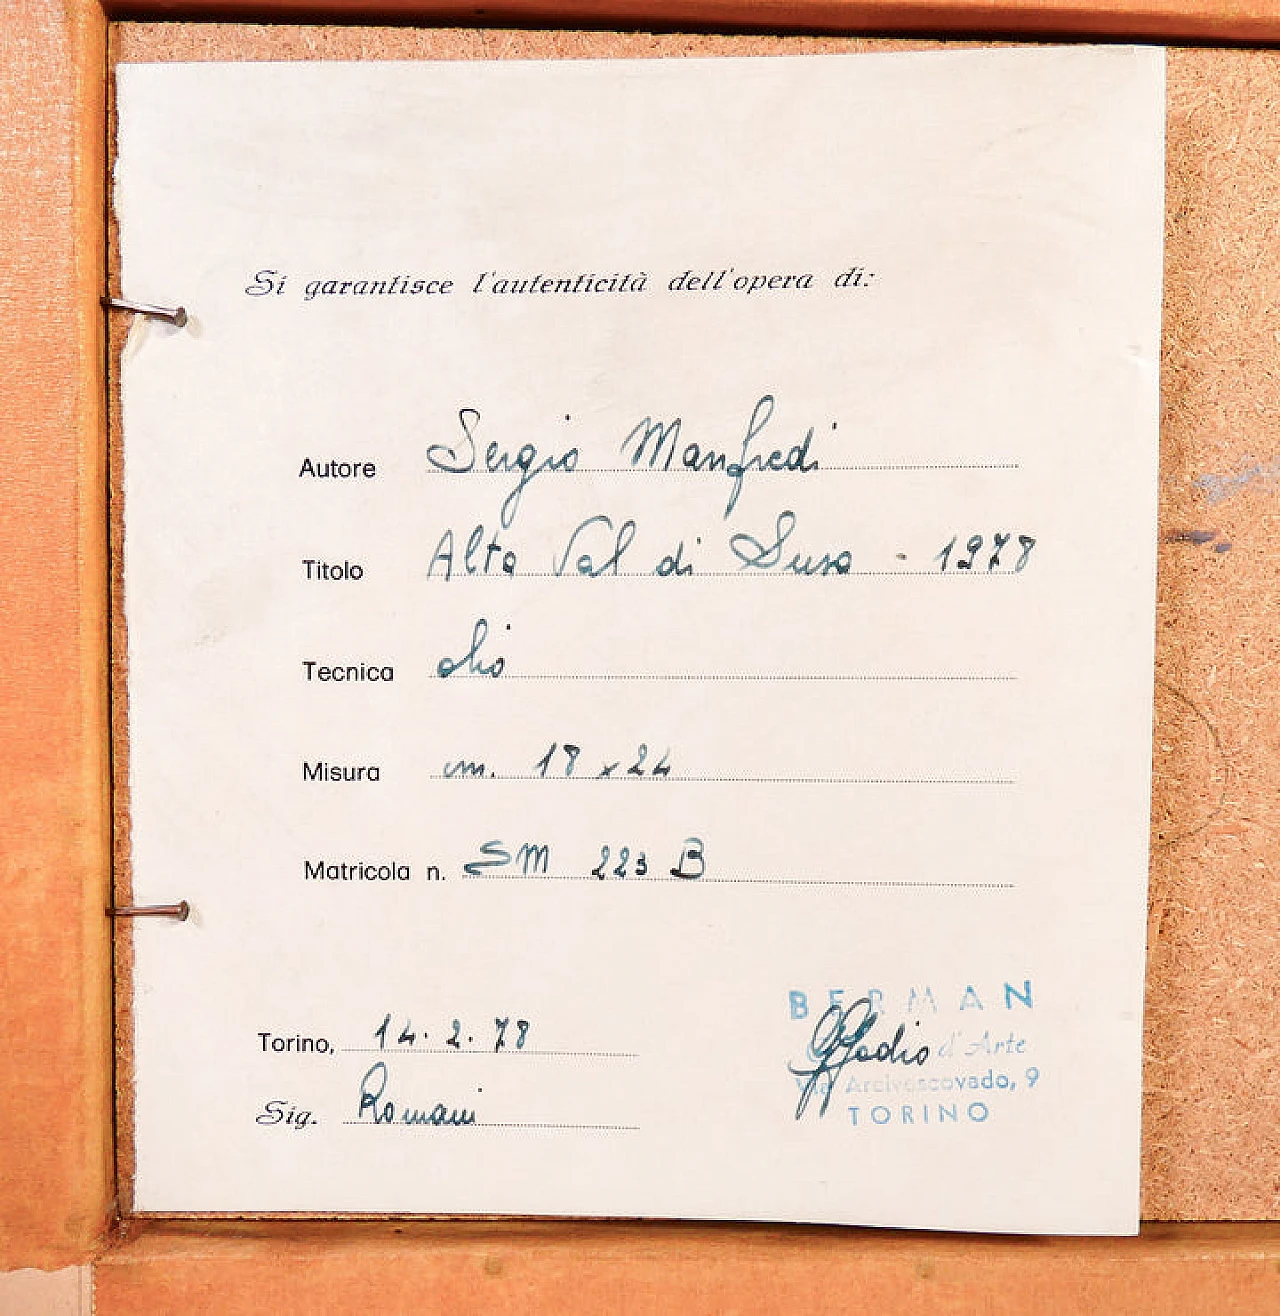 Si garantisce l'autenticità dell'opera di:
Autore Sergio Manfredi
Titolo Alta Val di Susa - 1978
Tecnica olio
Misura cm. 18 x 24
Matricola n. SM 223 B
BERMAN
Torino, 14. 2. 78
d'Arte
Via Arcivescovado, 9
Sig. Romani
TORINO